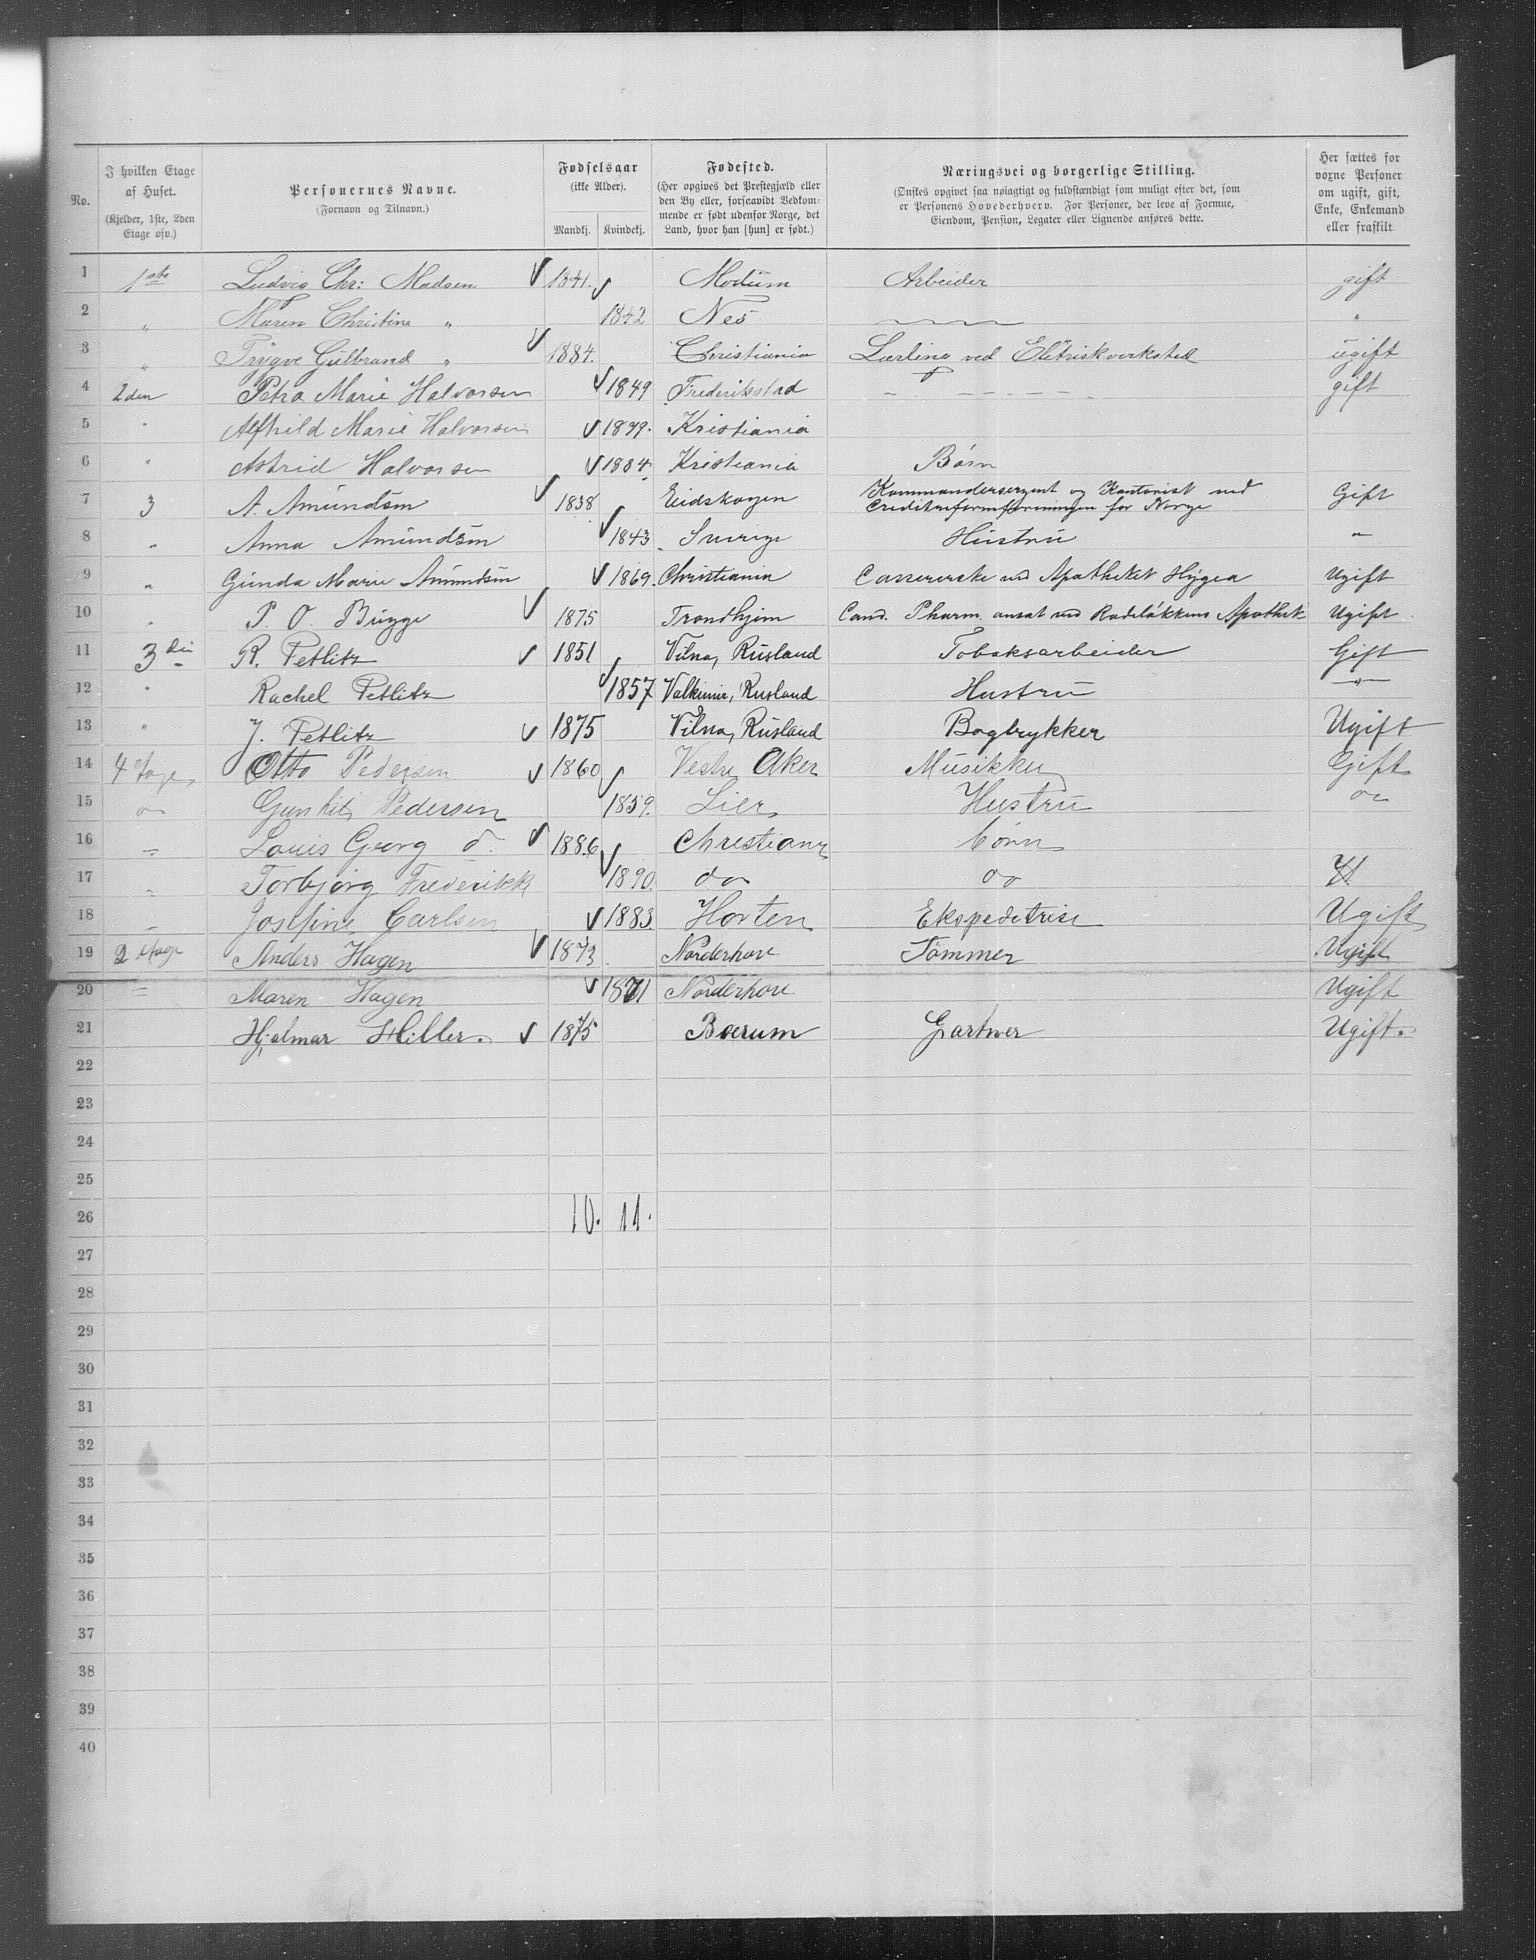 No.
I hvilken Etage
af Huset.
(Kjelder, 1ste, 2den
Etage osv.)
Personernes Navne.
(Fornavn og Tilnavn.)
Fødselsaar
(ikke Alder).
Mandkj. Kvindekj.
Fødested.
(Her opgives det Prestegjæld eller
den By eller, forsaavidt Vedkom-
mende er født udenfor Norge, det
Land, hvor han [hun] er født.)
Næringsvei og borgerlige Stilling.
(Ønskes opgivet saa nøiagtigt og fuldstændigt som muligt efter det, som
er Personens Hovederhverv. For Personer, der leve af Formue,
Eiendom, Pension, Legater eller Lignende anføres dette.
Her sættes for
voxne Personer
om ugift, gift,
Enke, Enkemand
eller fraskilt
1 1ste Ludvig Chr: Madsen 1841. Modum Arbeider gift
2 " Maren Christine " 1842 Nes "
3 " Trygve Gulbrand " 1884. Christiania Lærling ved Elétriskverksted ugift
4 2den Petra Marie Halvorsen 1849 Frederikstad gift
5 " Alfhild Marie Halvorsen 1879. Kristiania
6 " Astrid Halvorsen 1884 Kristiania Børn
7 3 A. Amundsen 1838 Eidskogen Kommandersergent og Kontorist ved
Creditreformforeningen for Norge Gift
8 " Anna Amundsen 1843 Sverige Hustru "
9 " Gunda Marie Amundsen 1869. Christiania Cassererske ved Apotheket Hygea Ugift
10 " P. O. Bugge 1875 Trondhjem Cand. Pharm. ansat ved Rodeløkkens Apothek Ugift
11 3die R. Petlitz 1851 Vilna, Rusland Tobaksarbeider Gift
12 " Rachel Petlitz 1857 Valkimir, Rusland Hustru "
13 " J. Petlitz 1875 Vilna, Rusland Bogtrykker Ugift
14 4 etage Otto Pedersen 1860 Vestre Aker Musikker Gift
15 do Gunhild Pedersen 1859. Lier Hustru do
16 " Louis Georg d. 1886 Christiania børn
17 " Torbjørg Frederikke 1890. do do
18 " Josefine Carlsen 1883 Horten Ekspeditrise Ugift
19 2 etage Anders Hagen 1873 Norderhove Tømmer Ugift
20 " Maren Hagen 1871 Norderhove Ugift
21 Hjalmar Hiller. 1875 Bærum Gartner Ugift.
22
23
24
25
26 10. 11.
27
28
29
30
31
32
33
34
35
36
37
38
39
40